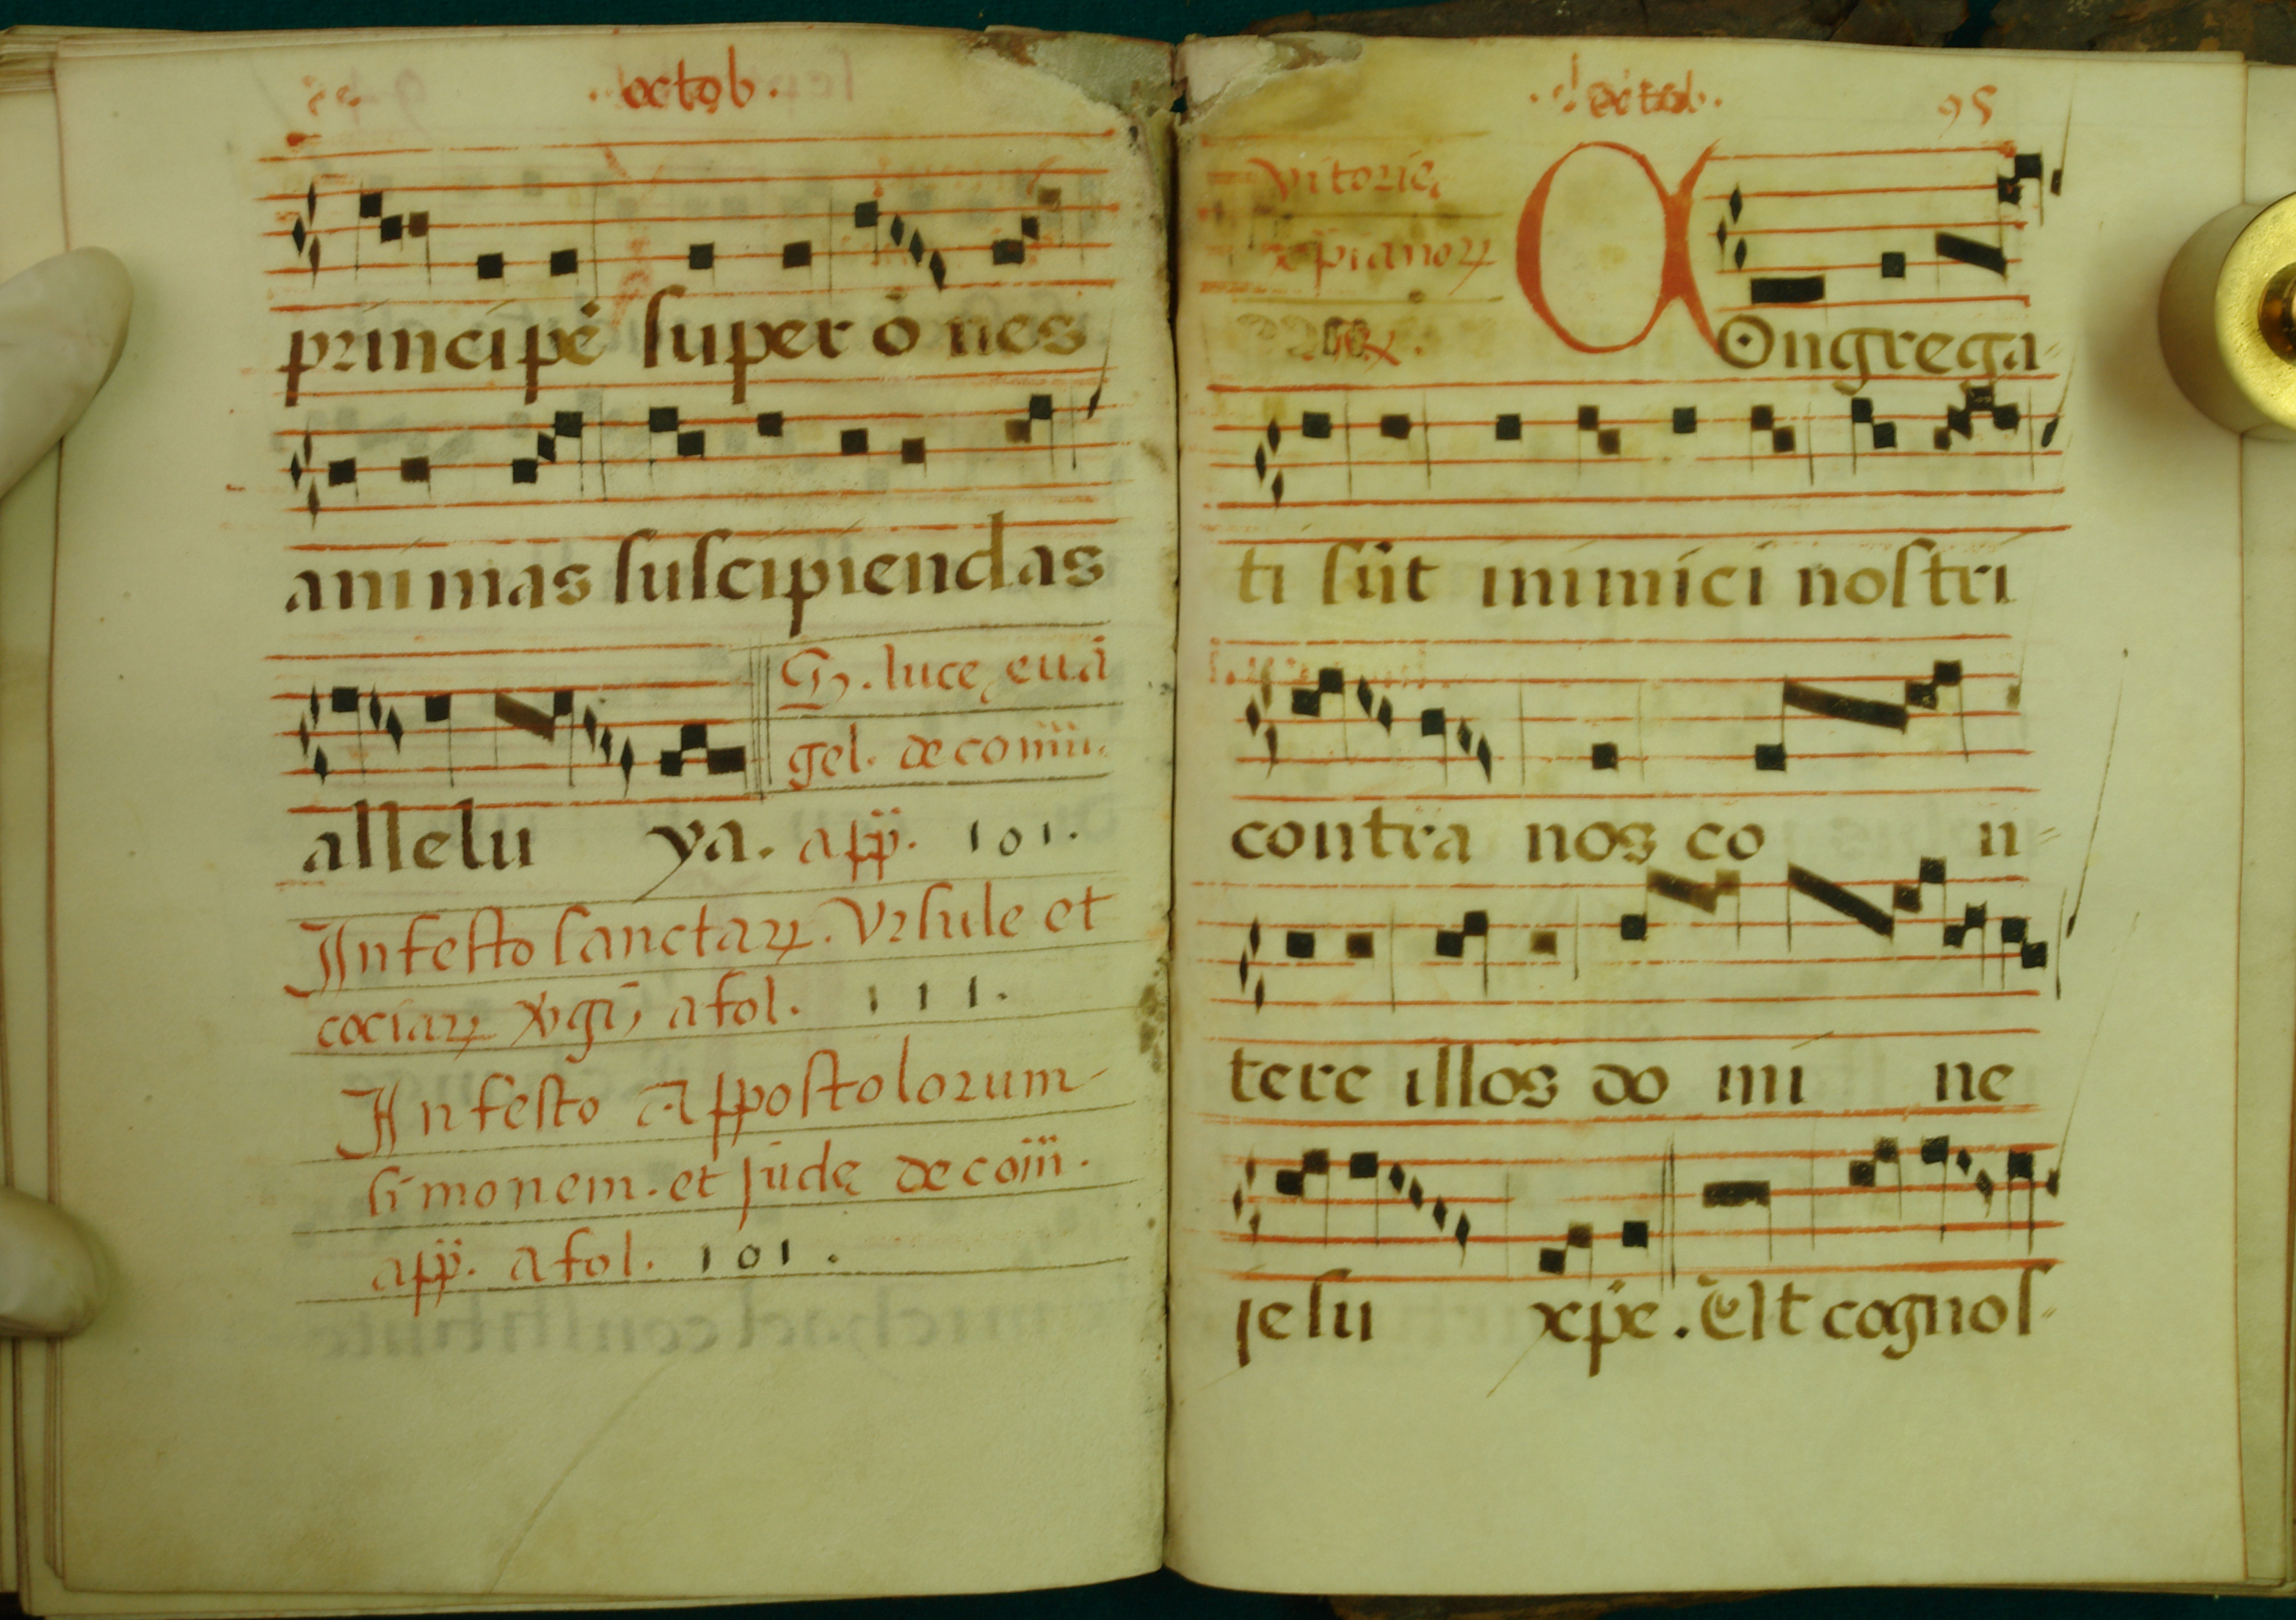 . octob .
principē super ōnes
animas suscipiendas
allelu ya. app̄. 101.
luce, euā
gel. de com̄u.
In festo sanctaꝝ. Vrsule et
cociaꝝ v̄gī, a fol. 111.
In festo Appostolorum
simonem. et Jude de com̄.
app̄. a fol. 101.
octob. 95
Vitorię
xp̄ianoꝝ
COngrega-
ti sūt inimici nostri
contra nos co n-
tere illos do mi ne
jesu xp̄e. Et cognos-